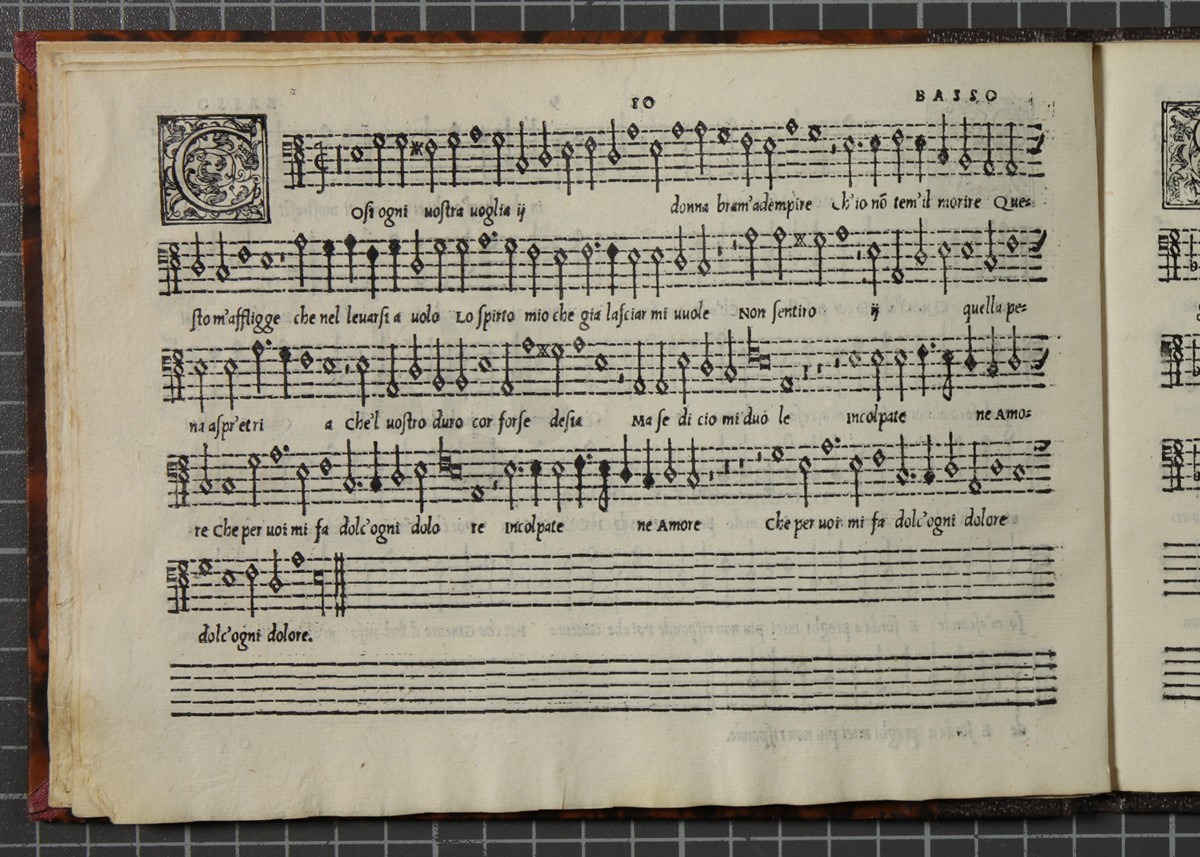 10 BASSO
COsi ogni uostra uoglia ij donna bram'adempire Ch'io nõ tem'il morire Ques-
sto m'affligge che nel leuarsi a uolo Lo spirto mio che gia lasciar mi uuole Non sentiro ij quella pe-
na aspr'et ri a Che'l uostro duro cor forse desia Ma se di cio mi duo le Incolpate ne Amo-
re Che per uoi mi fa dolc'ogni dolo re Incolpate ne Amore Che per uoi mi fa dolc'ogni dolore
dolc'ogni dolore.